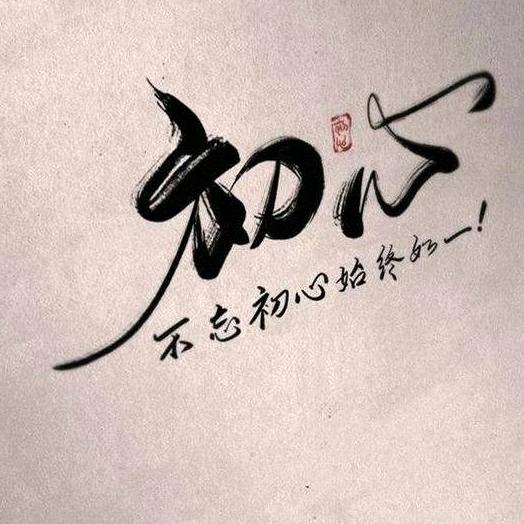 初心
不忘初心始终如一!